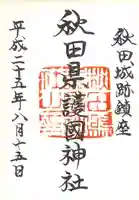 秋田城跡鎮座
秋田県護國神社
平成二十五年八月十五日